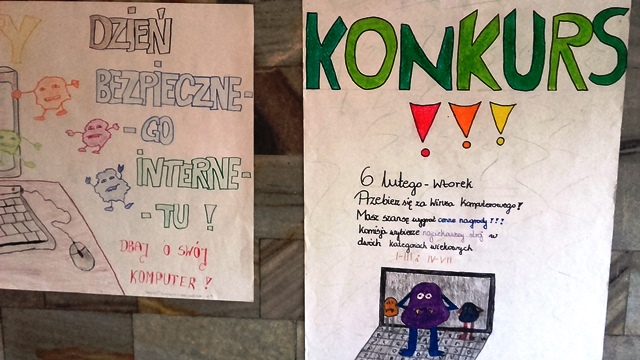 Y
DZIEŃ
BEZPIECZNE-
-GO
INTERNE-
-TU !
DBAJ O SWÓJ
KOMPUTER !
KONKURS
!!!
6 lutego - wtorek
Przebierz się za Wirusa komputerowego!
Masz szansę wygrać cenne nagrody!!!
Komisja wybierze najciekawszy strój w
dwóch kategoriach wiekowych
I-III i IV-VII